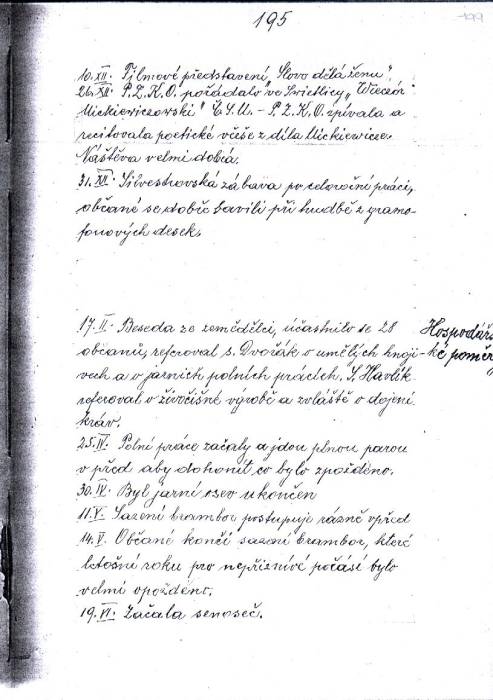 195
199
10.XII. Filmové představení „Slovo dělá ženu".
26.XII. P.Z.K.O. pořádalo ve Swietlicy „Wieczór
Mickiewiczowski" Č.S.M. - P.Z.K.O. zpívala a
recitovala poetické verše z díla Mickiewicze.
Návštěva velmi dobrá.
31.XII. Silvestrovská zábava po celoroční práci,
občané se dobře bavili při hudbě z gramo-
fonových desek.
17.II. Beseda ze zemědělci, účastnilo se 28
občanů, referoval s. Dvořák o umělých hnoji-
vech a o jarních polních prácích. S. Havlík
referoval o živočišné výrobě a zvláště o dojení
kráv.
Hospodářs
ké poměr
25.IV. Polní práce začaly a jdou plnou parou
v před aby dohonit co bylo zpožděno.
30.IV. Byl jarní osev ukončen
11.V. Sazení brambor postupuje rázně vpřed
14.V. Občané končí sazení brambor, které
letošní roku pro nepříznivé počasí bylo
velmi opožděno.
19.VI. Začala senoseč.